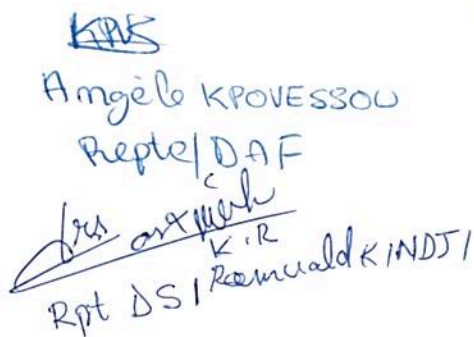 Angèle KPOVESSOU
Repte/DAF
K.R
Rpt DSI Romuald KINDJI